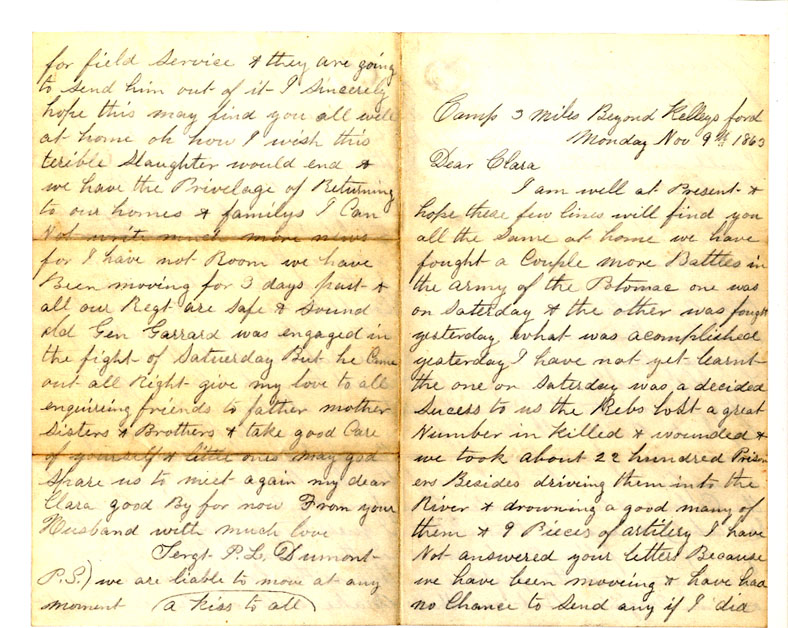 Camp 3 miles Beyond Kelleys ford
Monday Nov 9th 1863
Dear Clara
I am well at Present &
hope these few lines will find you
all the Same at home we have
fought a Couple more Battles in
the army of the Potomac one was
on Saturday & the other was fought
yesterday what was acomplished
yesterday I have not yet learnt
the one on Saturday was a decided
Sucess to us the Rebs lost a great
Number in killed & wounded &
we took about 22 hundred Prison
ers Besides driving them into the
River & drowning a good many of
them & 9 Pieces of artilery I have
Not answered your letters Because
we have been moveing & have had
no Chance to Send any if I did
for field Service & they are going
to send him out of it I Sincerely
hope this may find you all well
at home oh how I wish this
terible Slaughter would end &
we have the Privelage of Returning
to our homes & familys I Can
Not write much more now
for I have not Room we have
Been moving for 3 days past &
all our Regt are Safe & Sound
old Gen Garrard was engaged in
the fight of Satuerday But he Came
out all Right give my love to all
enquireing friends to father mother
Sisters & Brothers & take good Care
of yourself & little ones may god
Spare us to meet again my dear
Clara good By for now From your
Husband with much love
Sergt P.L. Dumont
P.S.) we are liable to move at any
moment (a kiss to all)